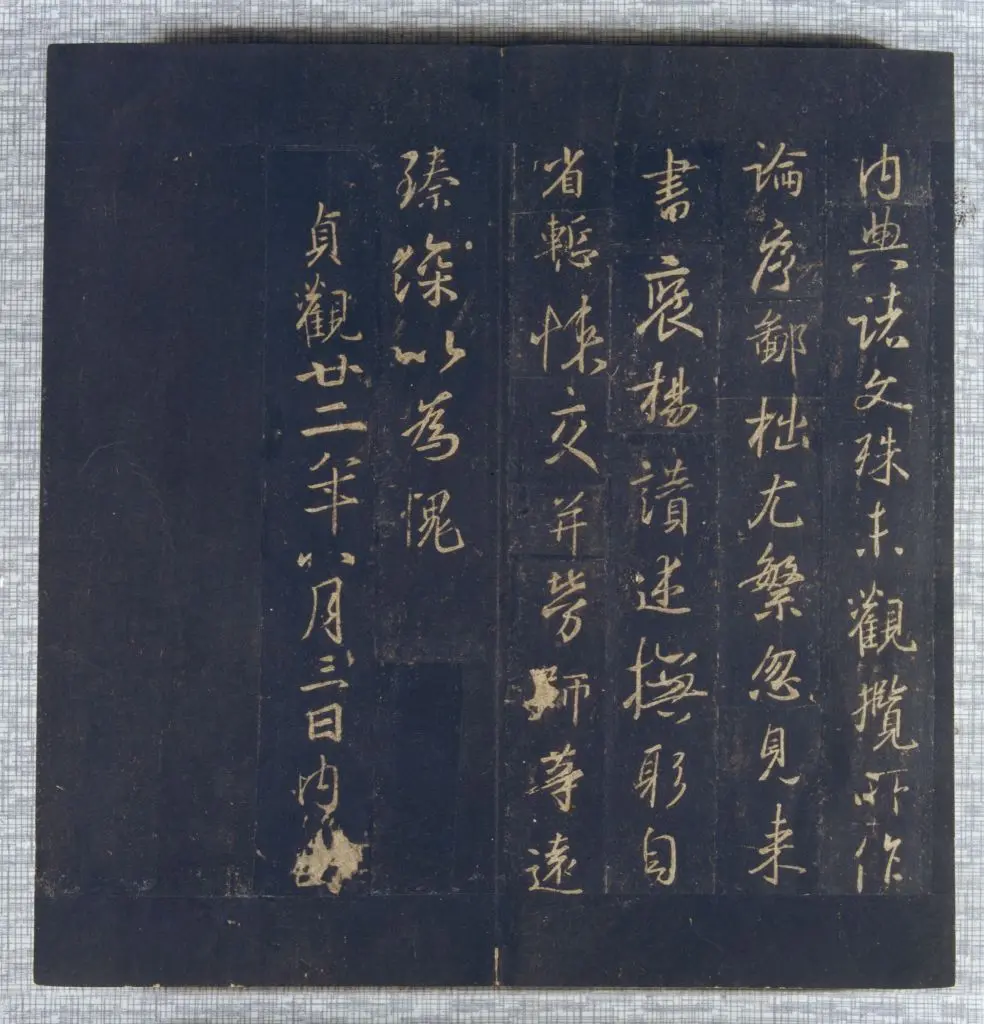 內典諸文殊未觀攬所作
論序鄙拙尤繁忽見來
書褒揚讃述撫躬自
省慙悚交并勞師等遠
臻深以為愧
貞觀廿二年八月三日內